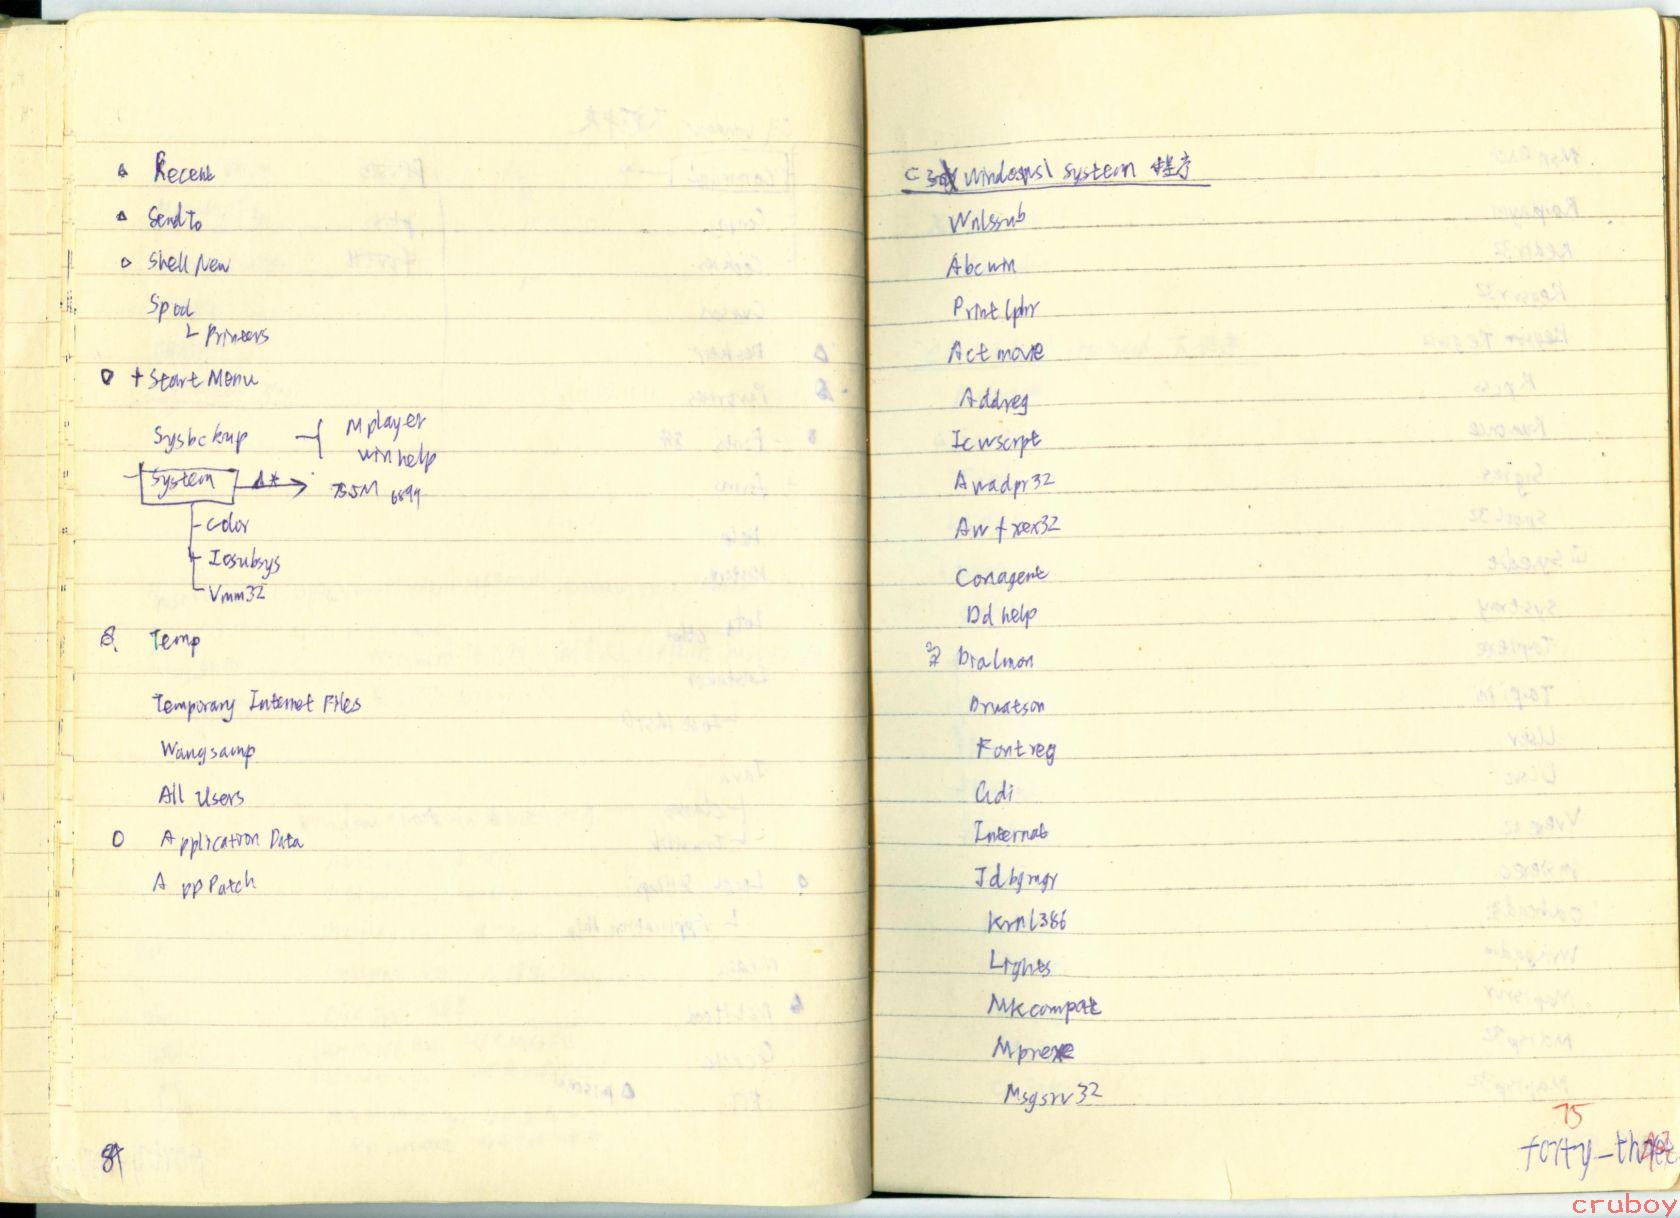 Recent
SendTo
Shell New
Spool
Printers
+ Start Menu
Sysbckup
Mplayer
winhelp
System
755M 6894
color
Iosubsys
Vmm32
Temp
Temporary Internet Files
Wangsamp
All Users
Application Data
AppPatch
84
C:\Windows\ system 程序
Wnlssub
Abcwin
Printlphr
Actmovie
Addreg
Icwscrpt
Awadpr32
Awfxex32
Conagent
Ddhelp
Dialmon
Drwatson
Fontreg
Gdi
Internat
Jdbgmgr
Krnl386
Lights
Mkcompat
Mprexe
Msgsrv32
75
forty-three
cruboy